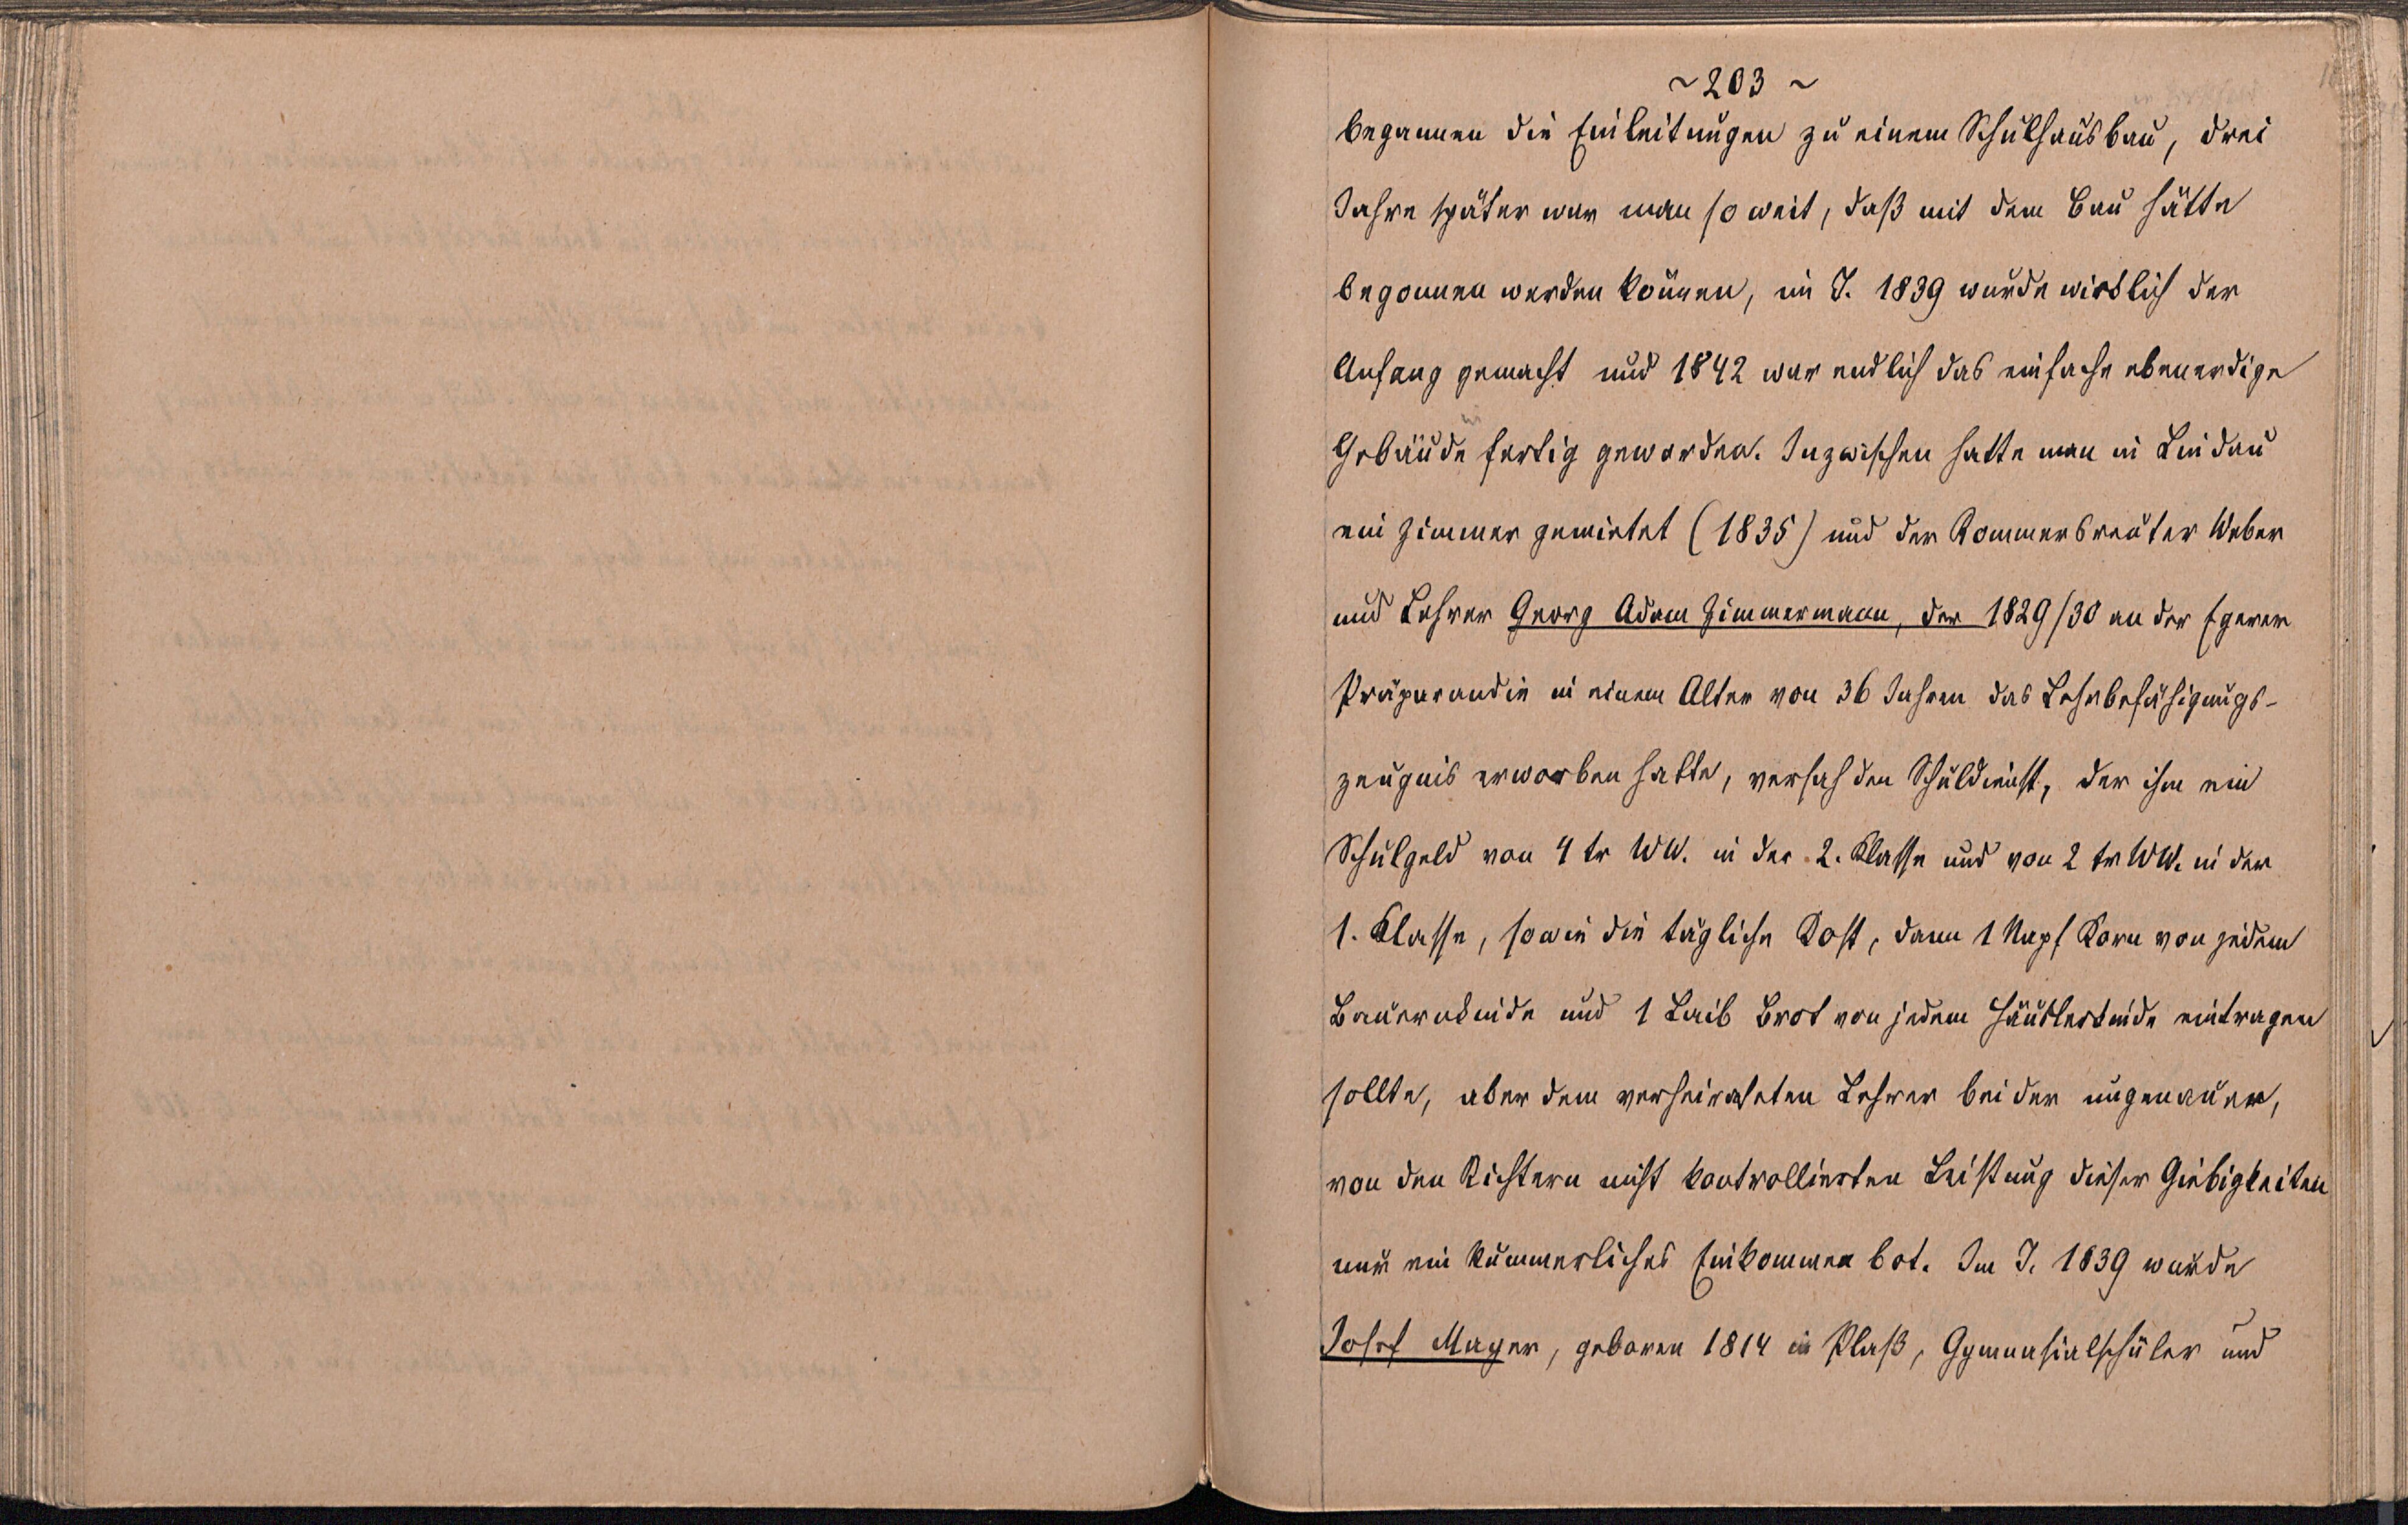 ~ 203 ~
begannen die Einleitungen zu einem Schulhausbau, drei
Jahre später war man so weit, daß mit dem Bau hätte
begonnen werden können, im J. 1839 wurde wirklich der
Anfang gemacht und 1842 war endlich das einfache ebenerdige
Gebäude fertig geworden. Inzwischen hatte man in Lindau
ein Zimmer gemietet (1835) und der Rommersreuter Weber
und Lehrer Georg Adam Zimmermann, der 1829/30 an der Egerer
Präparandie in einem Alter von 36 Jahren das Lehrbefähigungs-
zeugnis erworben hatte, versah den Schuldienst, der ihm ein
Schulgeld von 4 kr WW. in der 2. Klasse und von 2 kr WW. in der
1. Klasse, sowie die tägliche Kost, dann 1 Napf Korn von jedem
Bauernkinde und 1 Laib Brot von jedem Häuslerkinde eintragen
sollte, aber dem verheirateten Lehrer bei der ungenauen,
von den Richtern nicht kontrollierten Leistung dieser Giebigkeiten
nur ein kümmerliches Einkommen bot. Im J. 1839 wurde
Josef Mayer, geboren 1814 in Plaß, Gymnasialschüler und